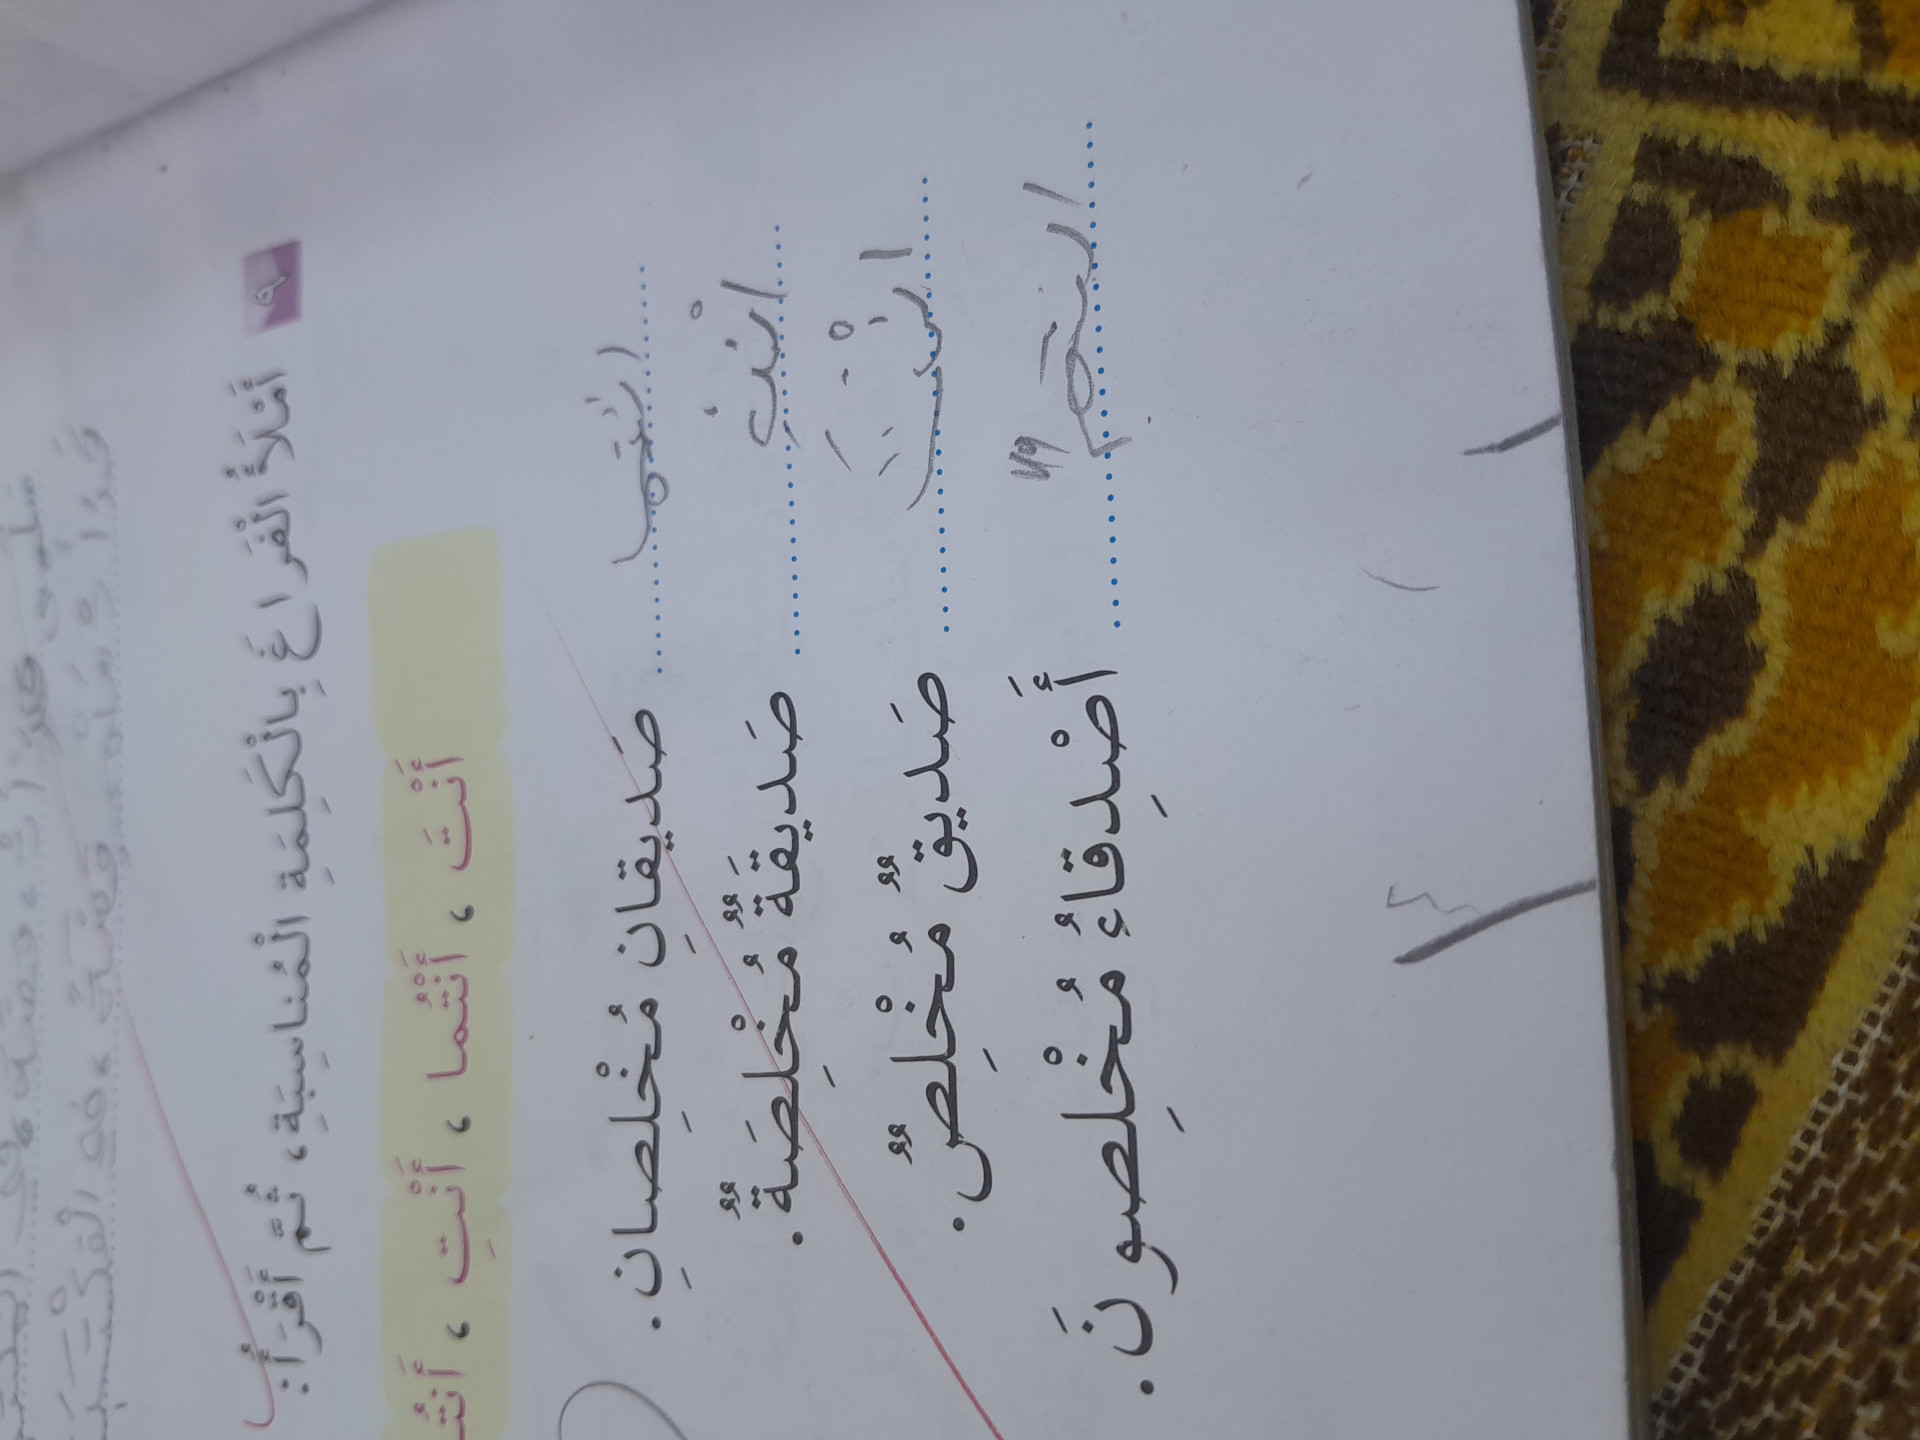 ٩ أَمْلَأُ الْفَراغَ بِالْكَلِمَةِ الْمُناسِبَةِ، ثُمَّ أَقْرَأُ:
أَنْتَ ، أَنْتُما ، أَنْتِ ، أَنْتُ
انتما صَديقانِ مُخْلِصانِ.
انْتِ صَديقَةٌ مُخْلِصَةٌ.
انْتَ صَديقٌ مُخْلِصٌ.
انتم أَصْدِقاءُ مُخْلِصونَ.